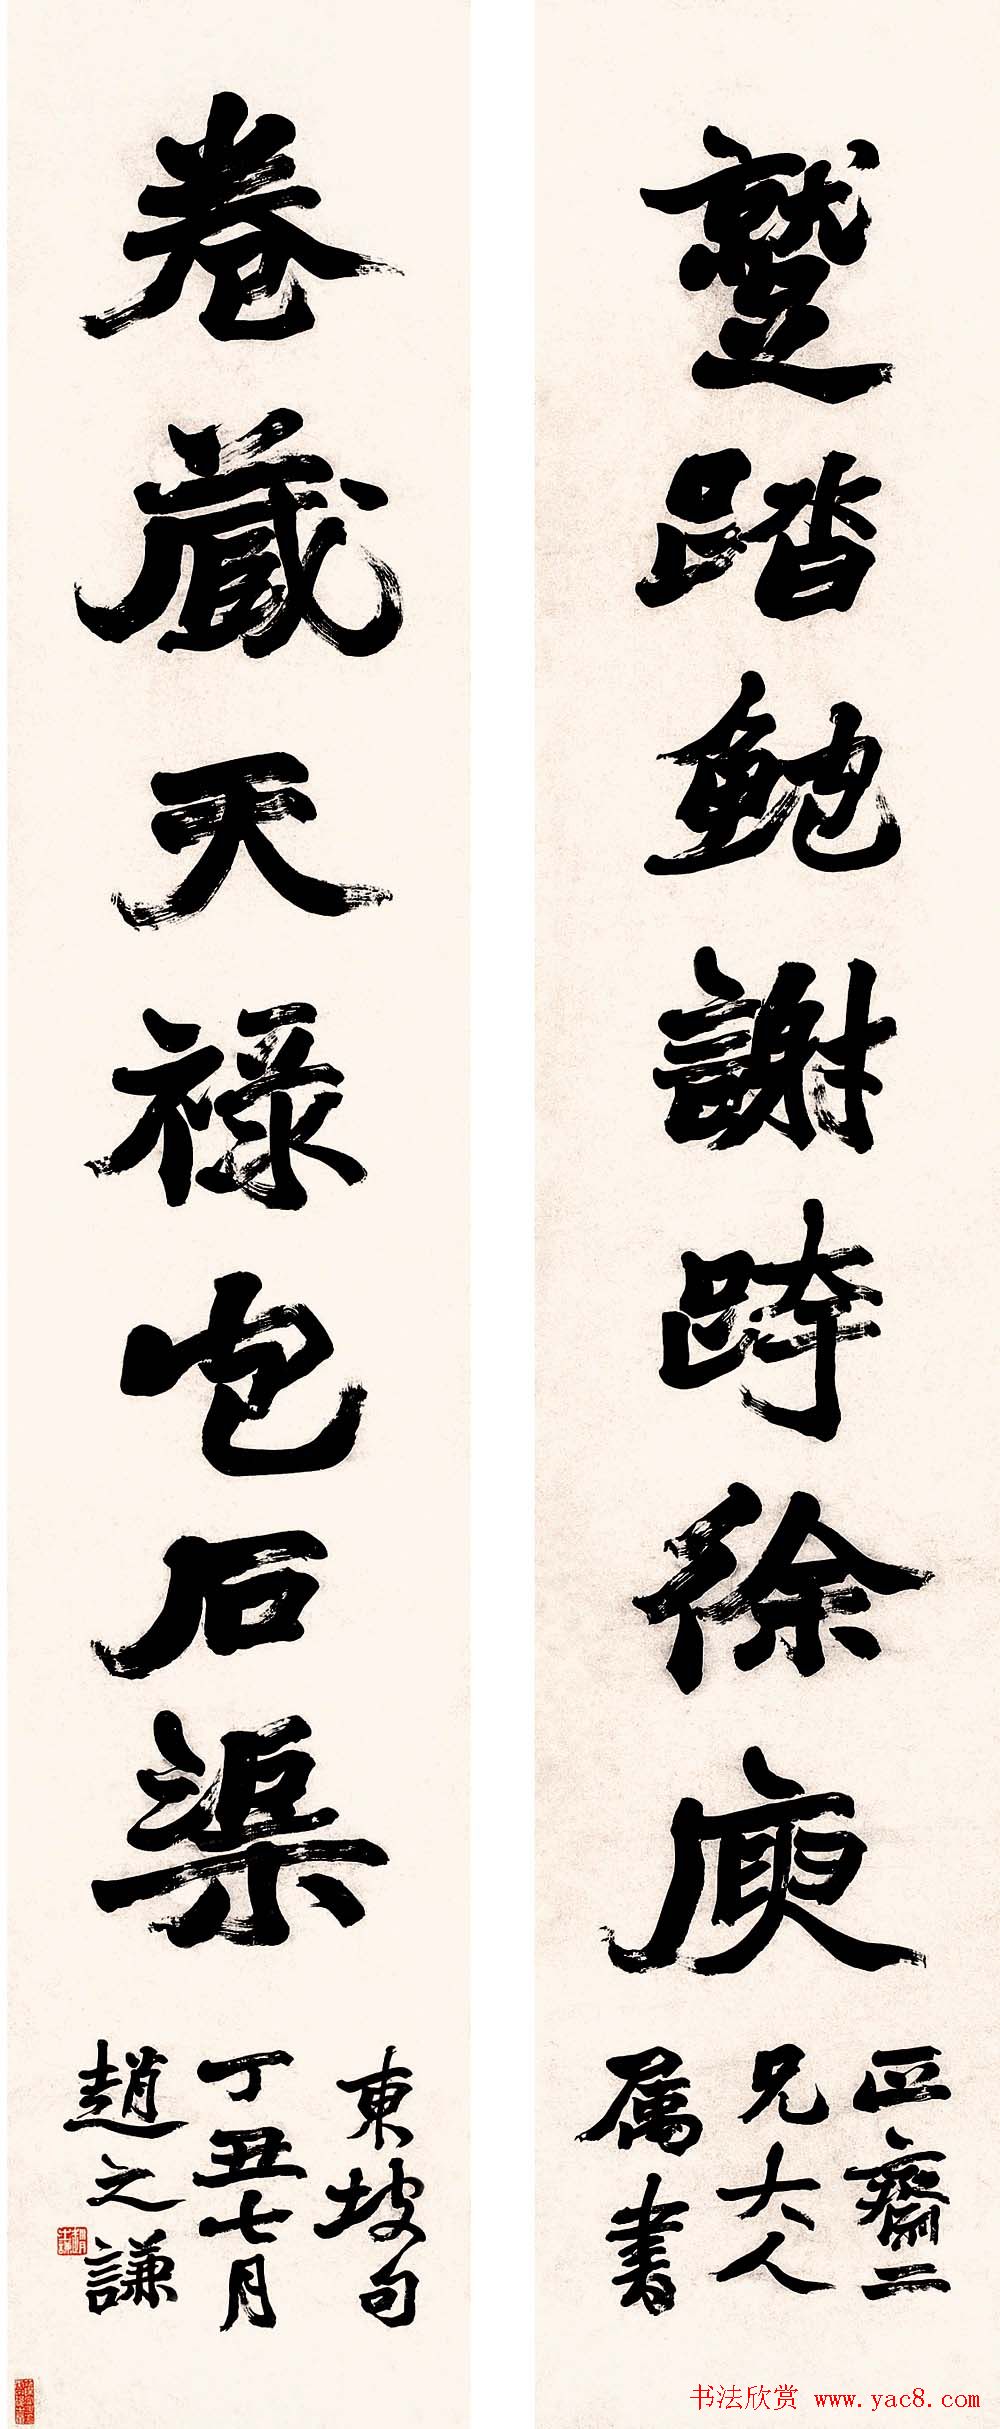 蹵踏鮑謝跨徐庾
正齋二
兄大人
属書
卷藏天禄包石渠
東坡句
丁丑七月
趙之謙
书法欣赏 www.yac8.com